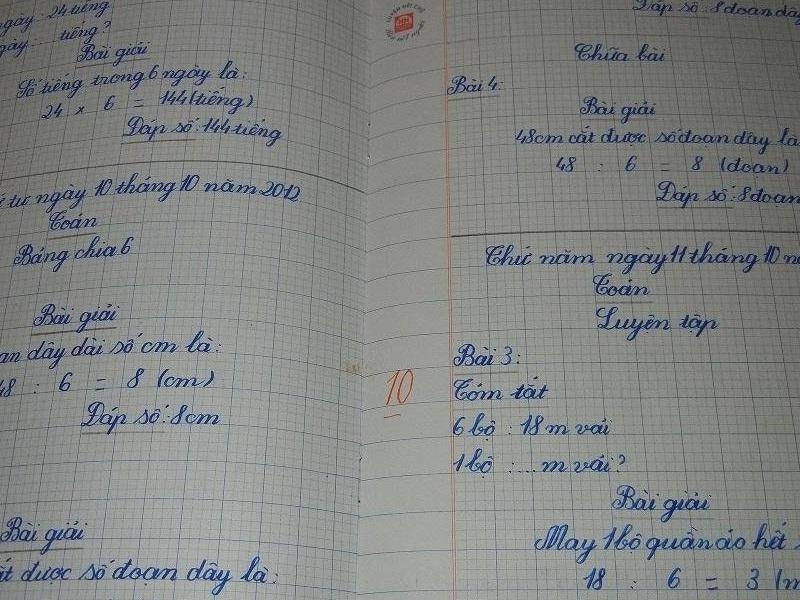 ngày 24 tiếng
ngày ... tiếng?
Bài giải
Số tiếng trong 6 ngày là:
24 × 6 = 144 (tiếng)
Đáp số: 144 tiếng
tư ngày 10 tháng 10 năm 2012
Toán
Bảng chia 6
Bài giải
dây dài số cm là:
48 : 6 = 8 (cm)
Đáp số: 8cm
Bài giải
được số đoạn dây là:
10
Đáp số: 8 đoạn dây
Chữa bài
Bài 4:
Bài giải
48cm cắt được số đoạn dây là
48 : 6 = 8 (đoạn)
Đáp số: 8 đoạn
Thứ năm ngày 11 tháng 10
Toán
Luyện tập
Bài 3:
Tóm tắt
6 bộ : 18 m vải
1 bộ : ... m vải?
Bài giải
May 1 bộ quần áo hết
18 : 6 = 3 (m